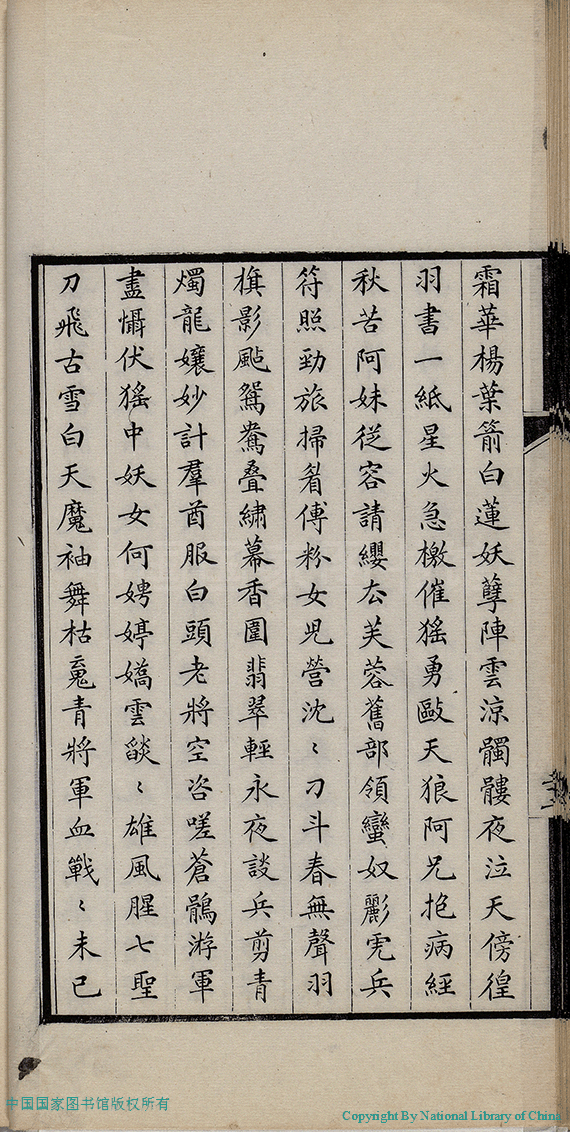 霜華楊葉箭白蓮妖孽陣雲涼髑髏夜泣天傍徨
羽書一紙星火急檄催猺勇毆天狼阿兄抱病經
秋苦阿妹從容請纓去芙蓉舊部領蠻奴彲虎兵
符照勁旅掃眉傅粉女児營沈〻刁斗春無聲羽
旗影颭鴛鴦疊繡幕香圍翡翠輕永夜談兵剪青
燭龍孃妙計羣酋服白頭老將空咨嗟蒼鶻游軍
盡懾伏猺中妖女何娉婷嬌雲燄〻雄風腥七聖
刀飛古雪白天魔袖舞枯䰟青將軍血戰〻未已
中国国家图书馆版权所有
Copyright By National Library of China